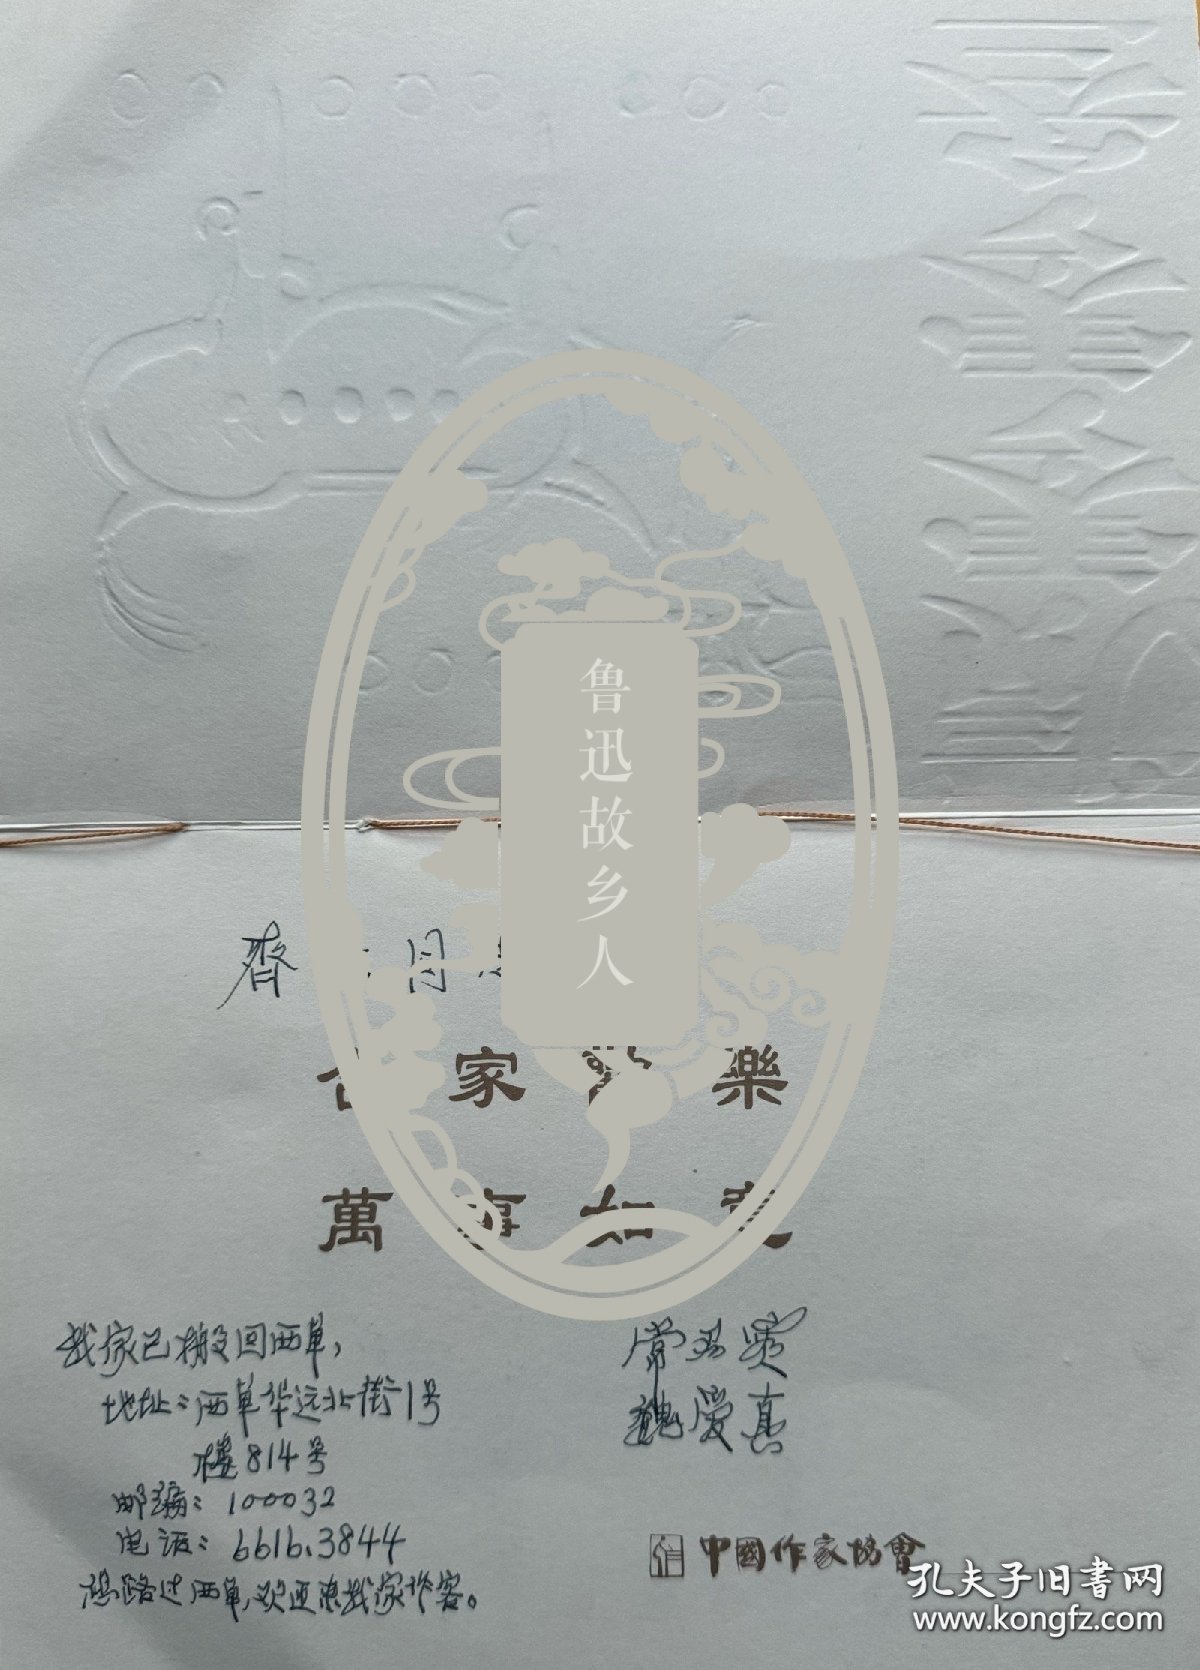 齊 同
鲁迅故乡人
家 樂
萬事如意
我家已搬回西单，
地址：西单华远北街1号
楼814号
邮编：100032
电话：6616.3844
路过西单，欢迎来我家作客。
常
魏爱真
中國作家協會
孔夫子旧書网
www.kongfz.com